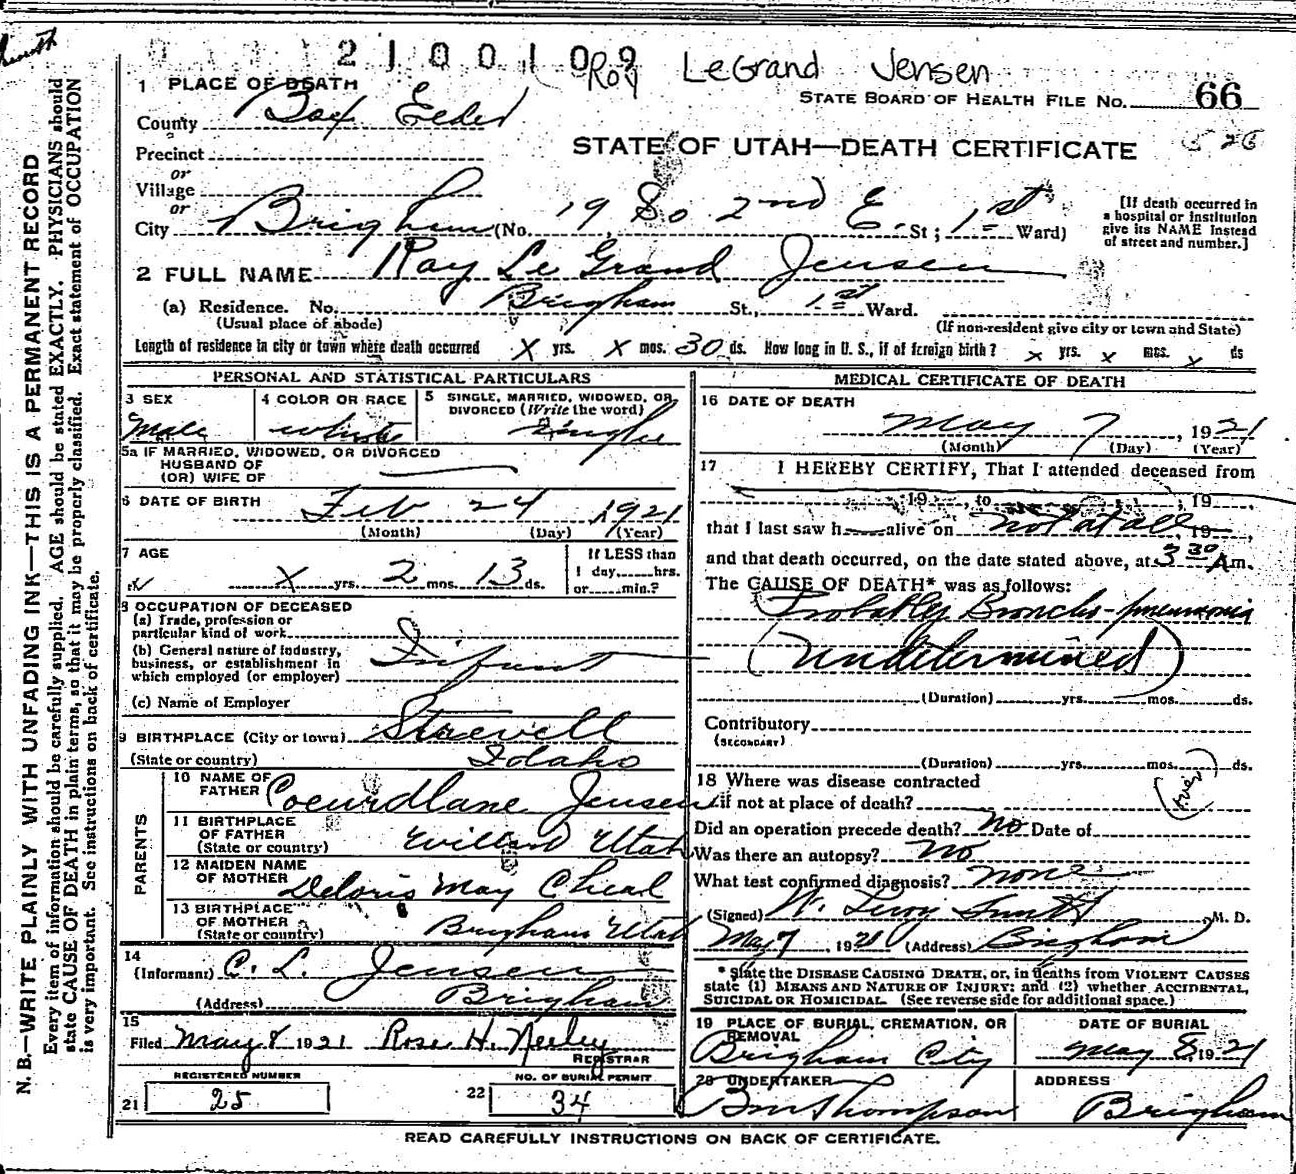 2100109
Roy LeGrand Jensen
1 PLACE OF DEATH
STATE BOARD OF HEALTH FILE NO. 66
County Box Elder
STATE OF UTAH—DEATH CERTIFICATE
Precinct
or
Village
or
City Brigham (No. 19 So 2nd E. St; 1st Ward)
[If death occurred in
a hospital or institution
give its NAME instead
of street and number.]
2 FULL NAME Ray Le Grand Jensen
(a) Residence. No. Brigham St., 1st Ward.
(Usual place of abode) (If non-resident give city or town and State)
Length of residence in city or town where death occurred X yrs. X mos. 30 ds. How long in U. S., if of foreign birth? x yrs. x mos. x ds
PERSONAL AND STATISTICAL PARTICULARS
3 SEX
Male
4 COLOR OR RACE
white
5 SINGLE, MARRIED, WIDOWED, OR
DIVORCED (Write the word)
Single
5a IF MARRIED, WIDOWED, OR DIVORCED
HUSBAND OF
(OR) WIFE OF
6 DATE OF BIRTH Feb 24 1921
(Month) (Day) (Year)
7 AGE
X yrs. 2 mos. 13 ds.
If LESS than
1 day,......hrs.
or......min.?
8 OCCUPATION OF DECEASED
(a) Trade, profession or
particular kind of work
(b) General nature of Industry,
business, or establishment in
which employed (or employer)
Infant
(c) Name of Employer
9 BIRTHPLACE (City or town)
(State or country) Idaho
PARENTS
10 NAME OF
FATHER Coeurdlane Jensen
11 BIRTHPLACE
OF FATHER
(State or country) Willard Utah
12 MAIDEN NAME
OF MOTHER Deloris May Cheal
13 BIRTHPLACE
OF MOTHER
(State or country) Brigham Utah
14
(Informant) C. L. Jensen
(Address) Brigham
15
Filed May 8 1921 Rose H. Neeley
REGISTRAR
REGISTERED NUMBER
21 25
NO. OF BURIAL PERMIT
22 34
MEDICAL CERTIFICATE OF DEATH
16 DATE OF DEATH
May 7, 1921
(Month) (Day) (Year)
17 I HEREBY CERTIFY, That I attended deceased from
19 , to , 19
that I last saw h alive on not at all, 19 ,
and that death occurred, on the date stated above, at 3 30 Am.
The CAUSE OF DEATH* was as follows:
Probably Broncho-pneumonia
(Undetermined)
(Duration) yrs. mos. ds.
Contributory
(SECONDARY)
(Duration) yrs. mos. ds.
18 Where was disease contracted
if not at place of death?
Did an operation precede death? No Date of
Was there an autopsy? No
What test confirmed diagnosis? none
(Signed) W. Leroy Smith M. D.
May 7, 1921 (Address) Brigham
* State the DISEASE CAUSING DEATH, or, in deaths from VIOLENT CAUSES
state (1) MEANS AND NATURE OF INJURY: and (2) whether ACCIDENTAL,
SUICIDAL OR HOMICIDAL. (See reverse side for additional space.)
19 PLACE OF BURIAL, CREMATION, OR
REMOVAL
Brigham City
DATE OF BURIAL
May 8, 1921
20 UNDERTAKER
Thompson
ADDRESS
Brigham
READ CAREFULLY INSTRUCTIONS ON BACK OF CERTIFICATE.
N. B.—WRITE PLAINLY WITH UNFADING INK—THIS IS A PERMANENT RECORD
Every item of information should be carefully supplied. AGE should be stated EXACTLY. PHYSICIANS should
state CAUSE OF DEATH in plain terms, so that it may be properly classified. Exact statement of OCCUPATION
is very important. See instructions on back of certificate.